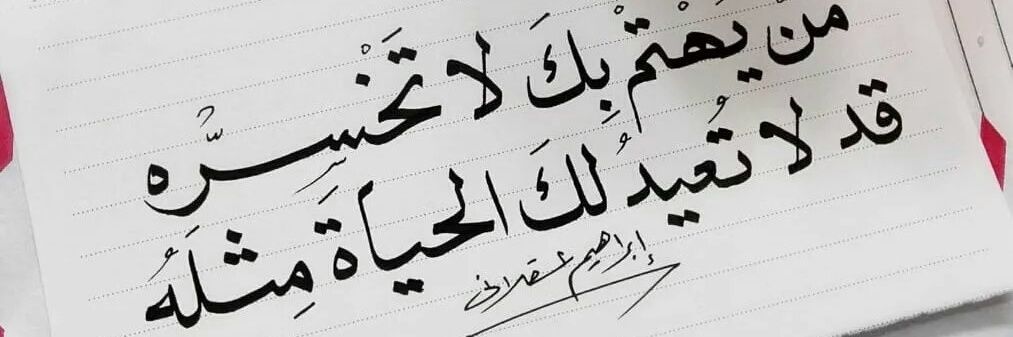 مَنْ يَهْتمْ بِكَ لا تَخْسَرْه
قد لا تُعيدُ لكَ الحياةَ مِثلَهُ
إبراهيم عسقلاني